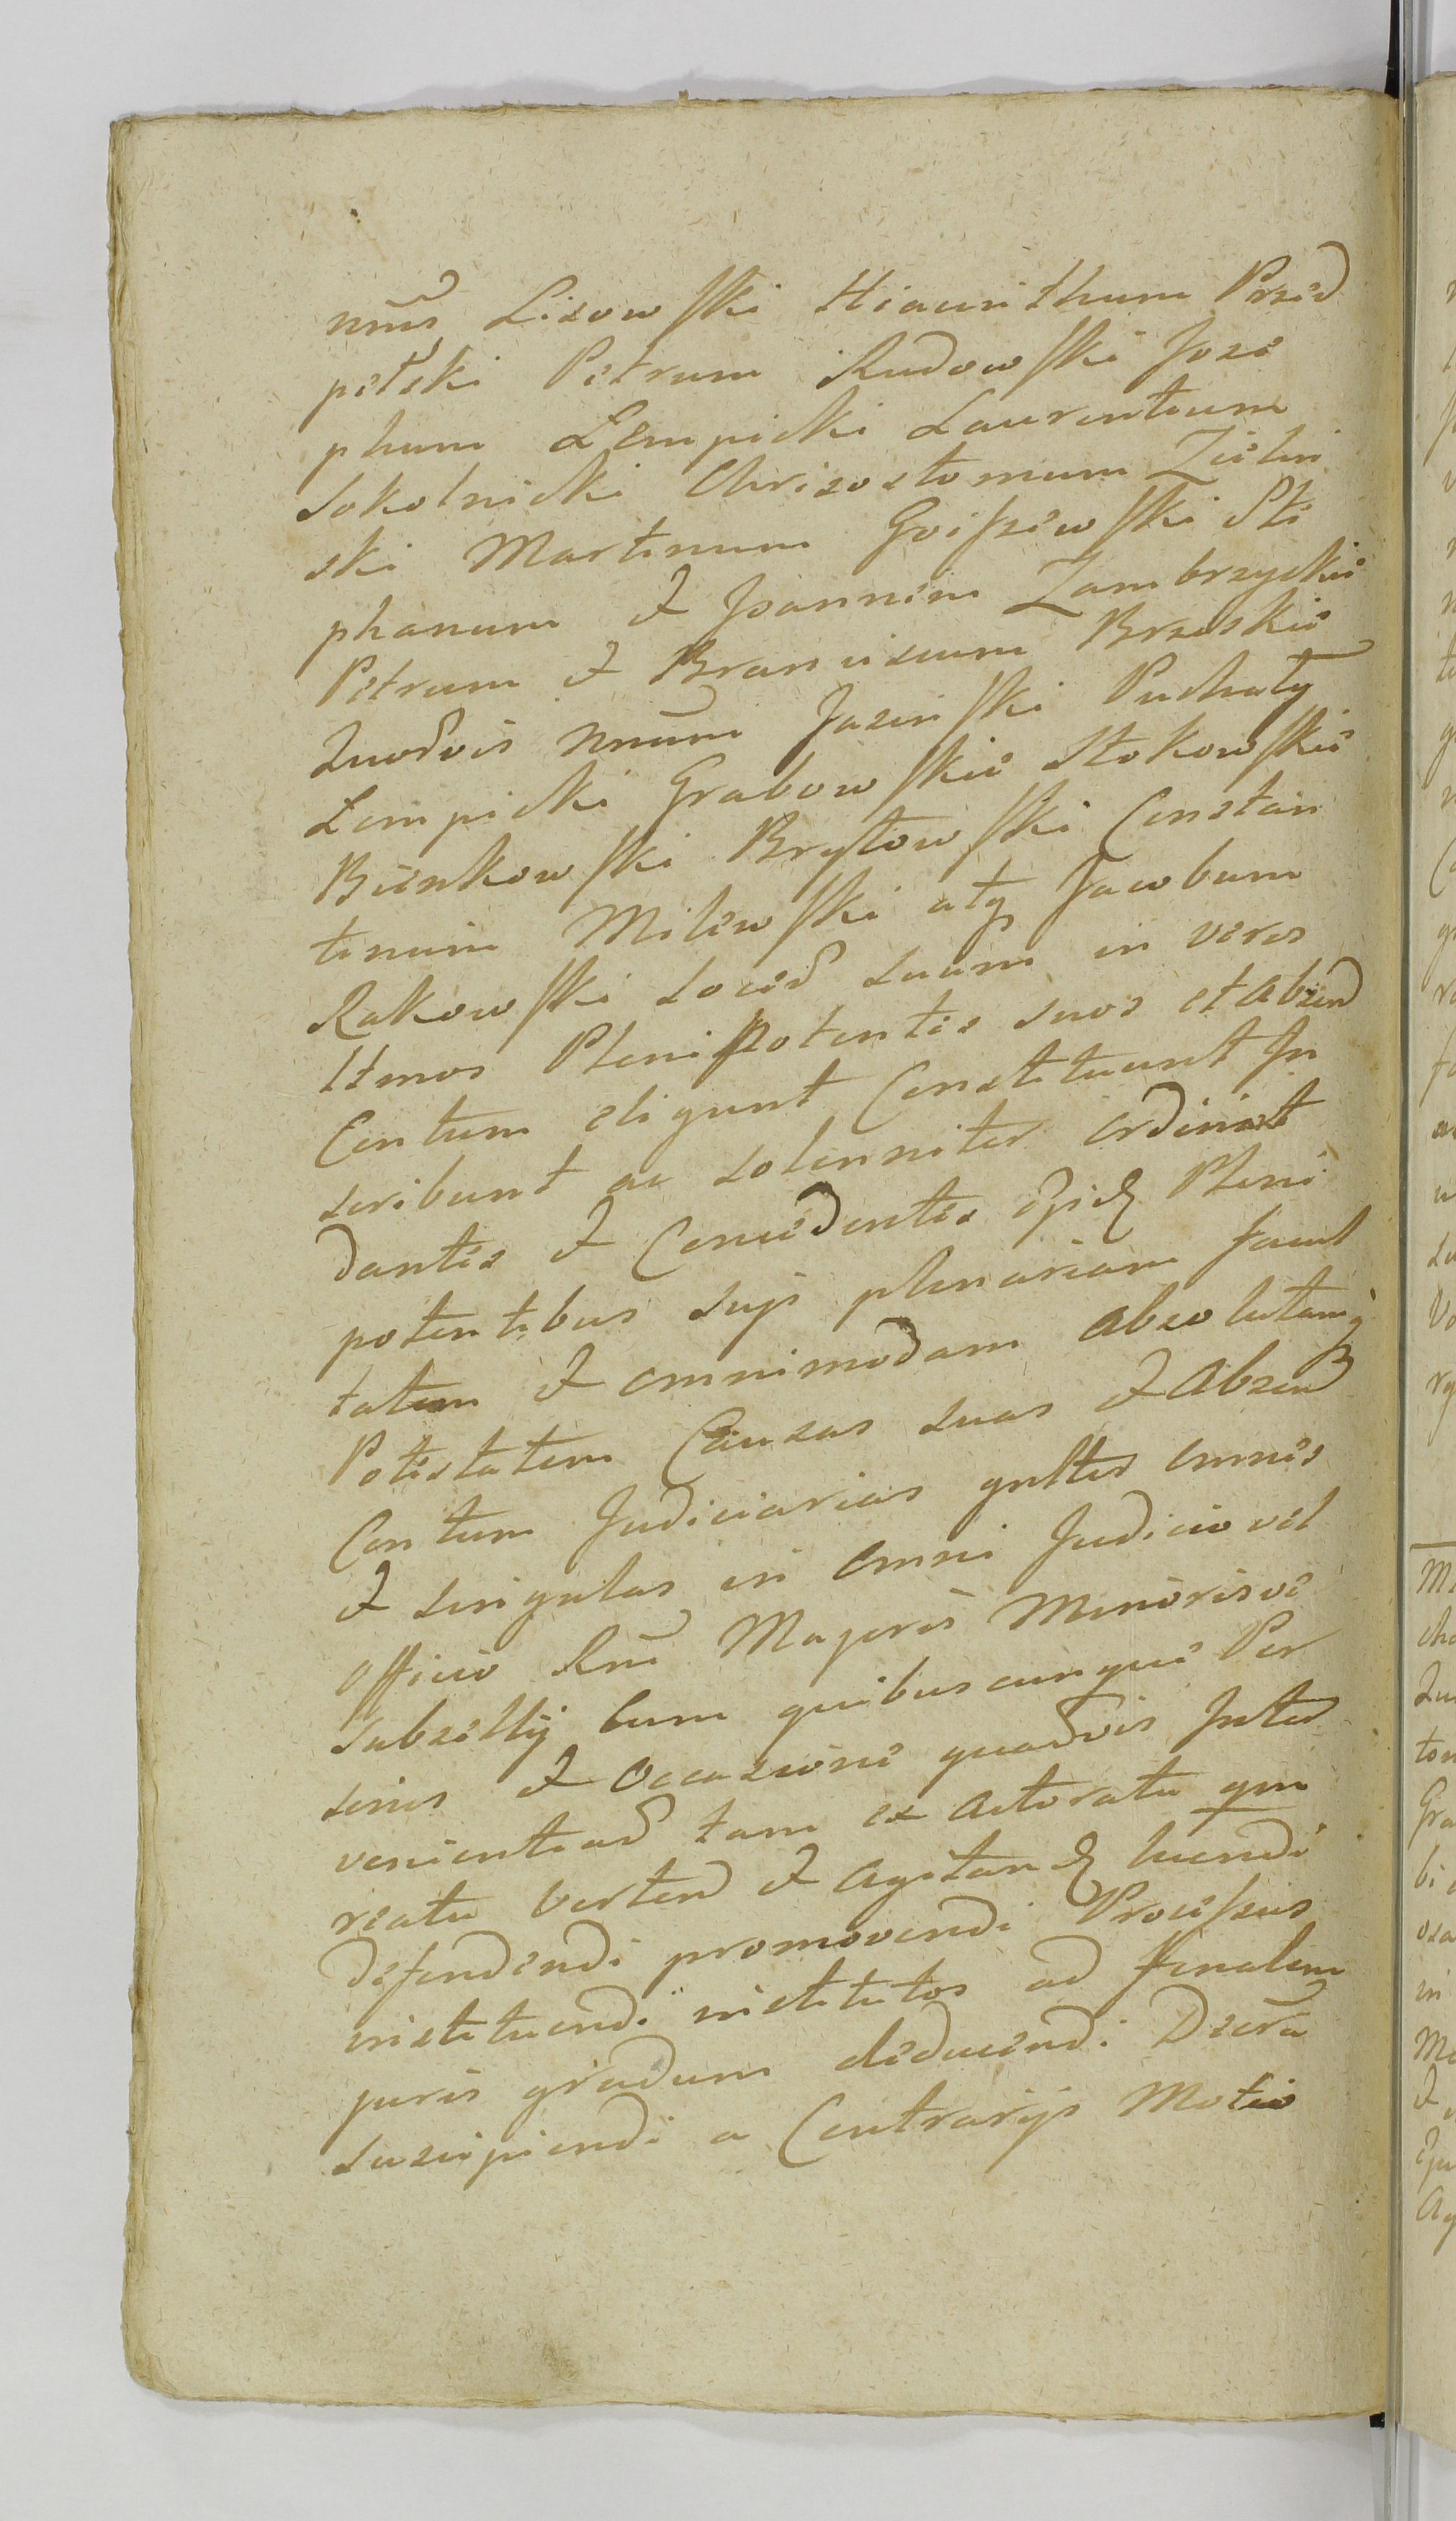 nms Lisowski Hiacinthum Przed
pełski Petrum Rudowski Jose
phum Lempicki Laurentium
Sokolnicki Chrisostomum Zielin
ski Martinum Goiszewski Ste
phanum et Joannem Zambrzyckie
Petrum et Franciscum Brzeskie
Quosvis nnum Jasinski Puchały
Lempicki Grabowskie Stokowskie
Bienkowski Brytowski Constan
tinum Milewski atq Jacobum
Rakowski Socios suum in veros
ltmos Plenipotentes suos et absen
Centum eligunt Constituunt In
scribunt ac solenniter ordinat
dantes et Concedentes Pleni
potentibus suis plenariam facul
tatem et omnimodam absolutamq
Potestatem Causas suas et Absen
Centum Judiciarias gnlter omnes
et singulas in omni Judicio vel
officio Rni Majoris Minorisve
Subsellij Cum quibuscunque Per
sonis et occasione quavis Inter
venientiad tam ex actoratu qm
reatu verten et agitan luendi
defendendi promovendi Processus
instituendi institutos ad finalem
juris gradum deducendi Decra
suscipiendi a Contrarijs Motio